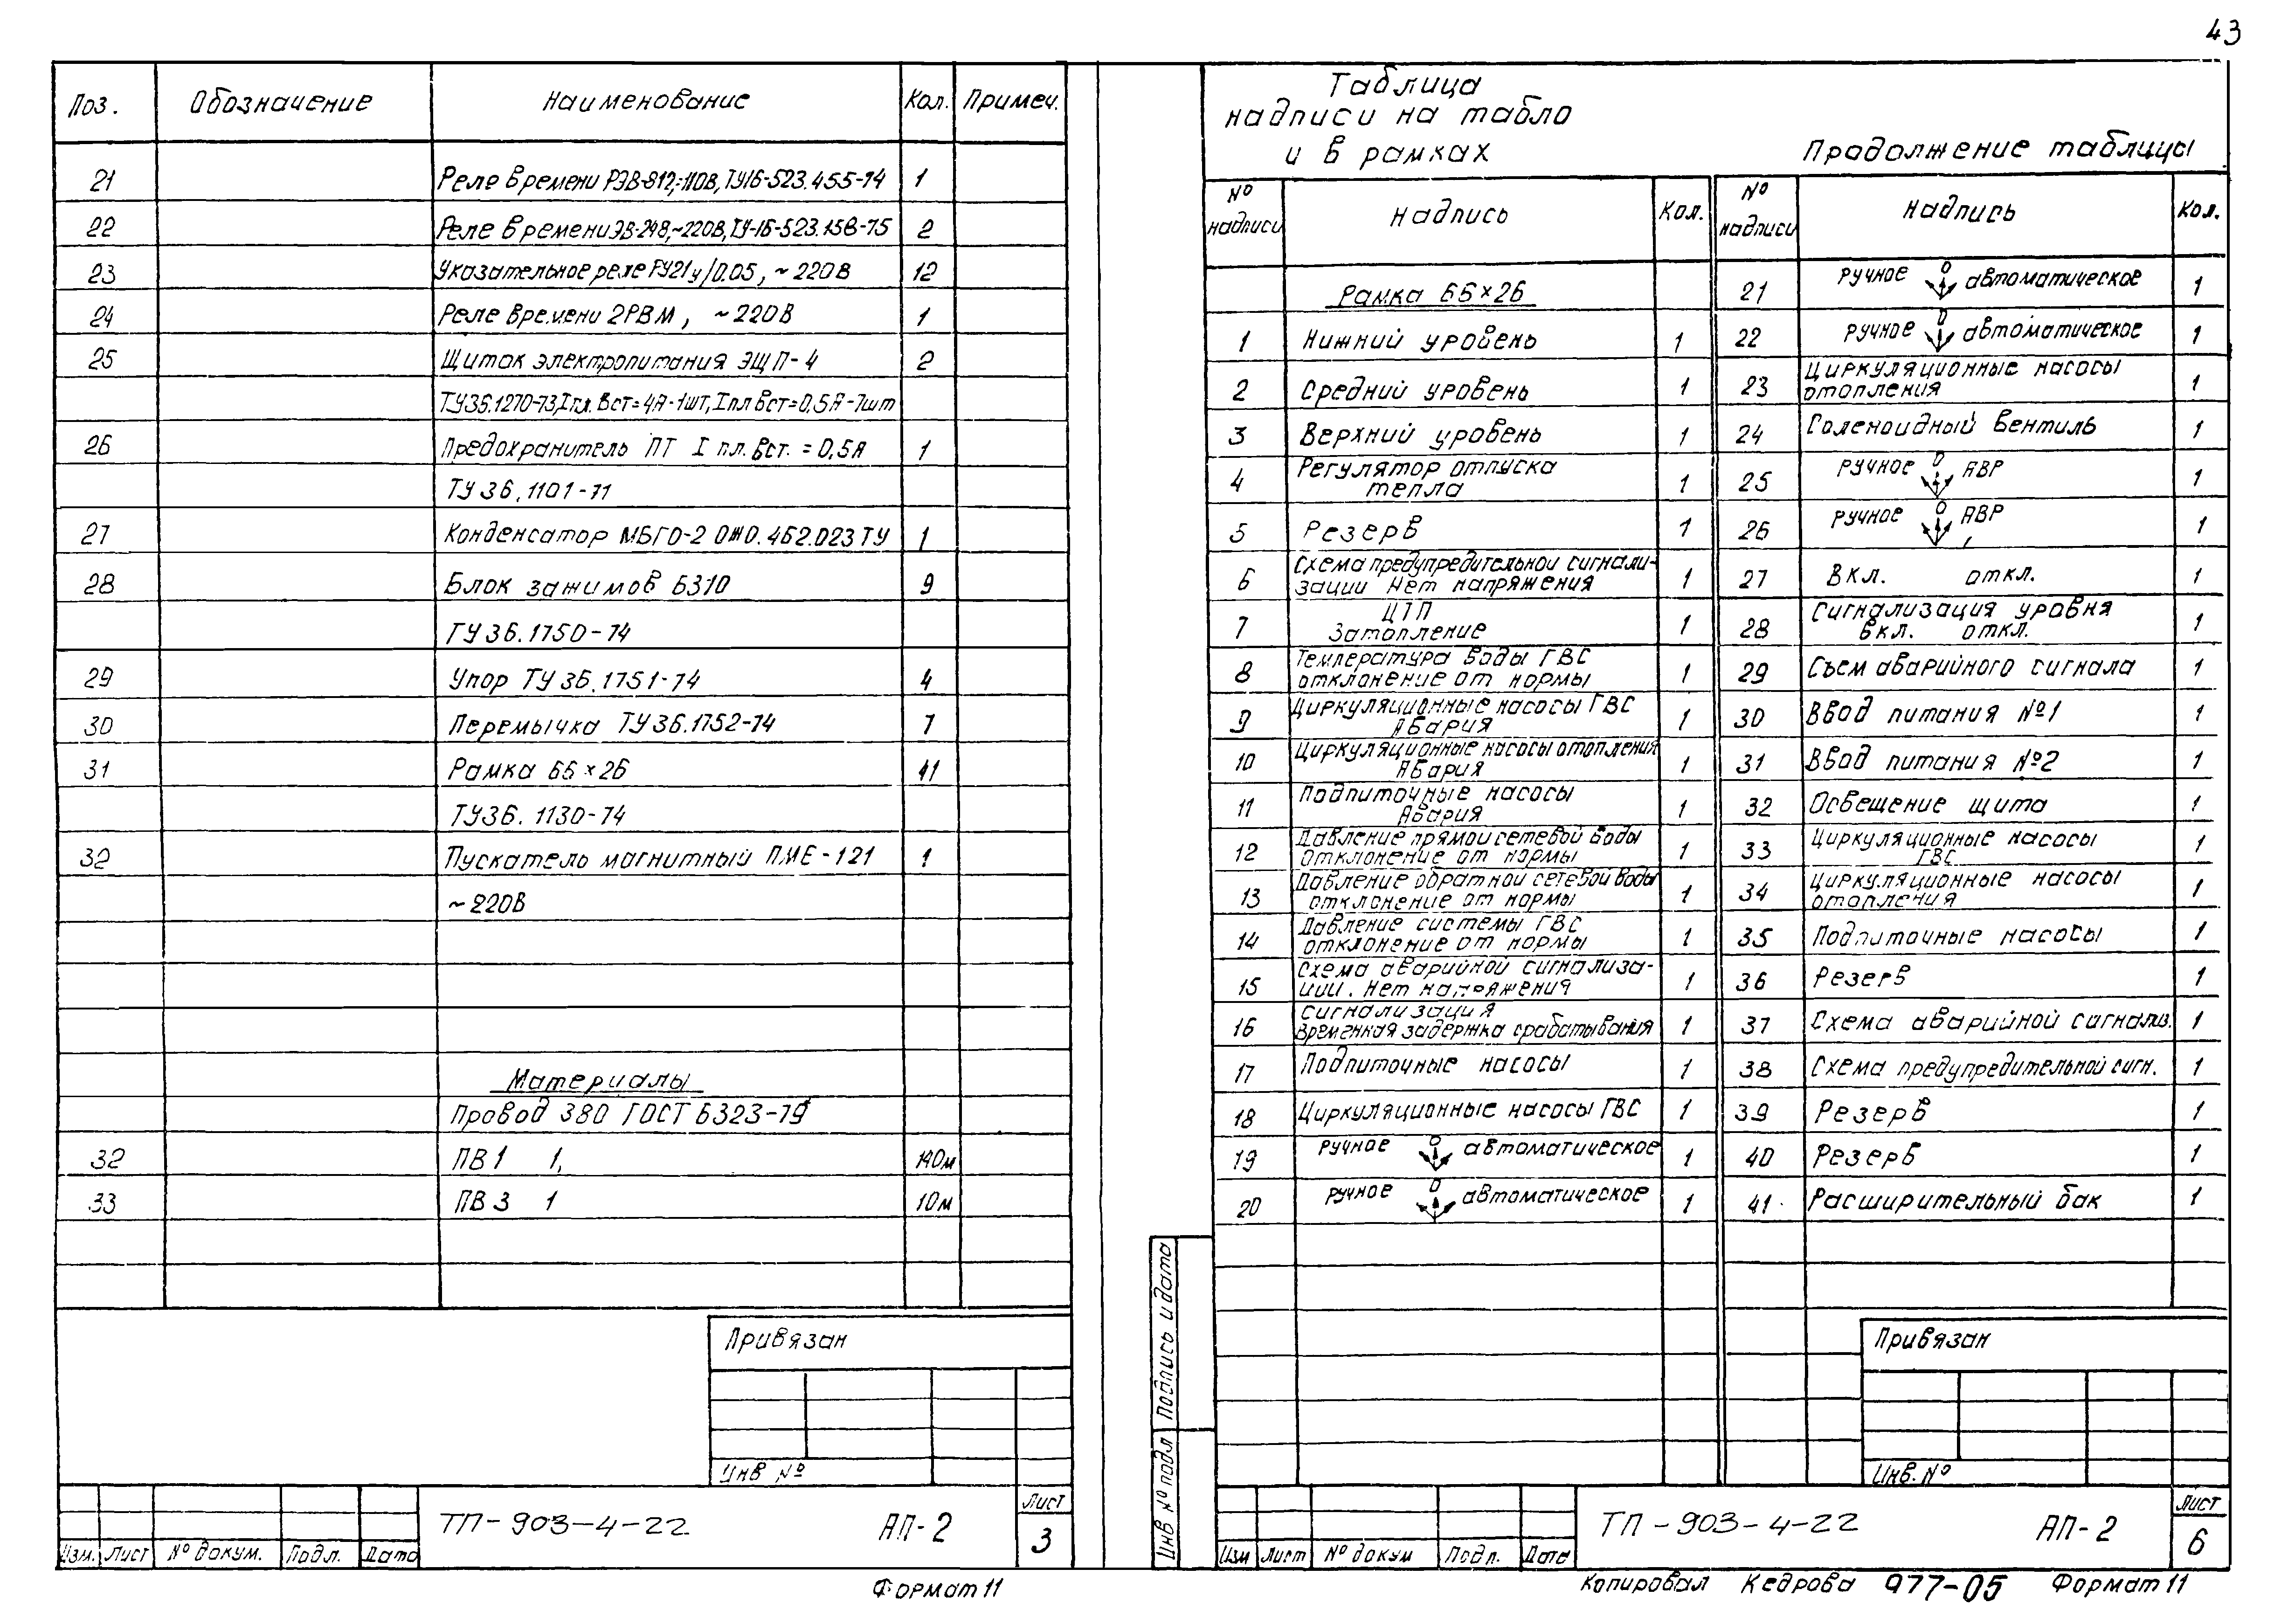 43
Поз. Обозначение Наименование Кол. Примеч.
21 Реле времени РЭВ-812,-110В, ТУ16-523.455-74 1
22 Реле времени ЭВ-248,~220В, ТУ-16-523.158-75 2
23 Указательное реле РУ21у/0.05, ~220В 12
24 Реле времени 2РВМ, ~220В 1
25 Щиток электропитания ЭЩП-4 2
ТУ36.1270-73, Iпл. вст=4А-1шт, Iпл вст=0,5А-7шт
26 Предохранитель ПТ I пл. вст. = 0,5А 1
ТУ 36.1101-71
27 Конденсатор МБГО-2 ОЖ0.462.023 ТУ 1
28 Блок зажимов Б310 9
ТУ 36.1750-74
29 Упор ТУ 36.1751-74 4
30 Перемычка ТУ 36.1752-74 7
31 Рамка 66×26 41
ТУ36.1130-74
32 Пускатель магнитный ПМЕ-121 1
~220В
Материалы
Провод 380 ГОСТ 6323-79
32 ПВ1 1, 140м
33 ПВ3 1 10м
Привязан
Инв №
Изм. Лист № докум. Подл. Дата
ТП-903-4-22 АП-2
Лист
3
Формат 11
Таблица
надписи на табло
и в рамках
№ надписи Надпись Кол.
Рамка 66×26
1 Нижний уровень 1
2 Средний уровень 1
3 Верхний уровень 1
4 Регулятор отпуска
тепла 1
5 Резерв 1
6 Схема предупредительной сигнали-
зации Нет напряжения 1
7 ЦТП
Затопление 1
8 Температура воды ГВС
отклонение от нормы 1
9 Циркуляционные насосы ГВС
Авария 1
10 Циркуляционные насосы отопления
Авария 1
11 Подпиточные насосы
Авария 1
12 Давление прямой сетевой воды
Отклонение от нормы 1
13 Давление обратной сетевой воды
отклонение от нормы 1
14 Давление системы ГВС
отклонение от нормы 1
15 Схема аварийной сигнализа-
ции. Нет напряжения 1
16 Сигнализация
временная задержка срабатывания 1
17 Подпиточные насосы 1
18 Циркуляционные насосы ГВС 1
19 ручное 0 автоматическое 1
20 ручное 0 автоматическое 1
Продолжение таблицы
№ надписи Надпись Кол.
21 ручное 0 автоматическое 1
22 ручное 0 автоматическое 1
23 Циркуляционные насосы
отопления 1
24 Соленоидный вентиль 1
25 ручное 0 АВР 1
26 ручное 0 АВР 1
27 Вкл. откл. 1
28 Сигнализация уровня
вкл. откл. 1
29 Съем аварийного сигнала 1
30 Ввод питания №1 1
31 Ввод питания №2 1
32 Освещение щита 1
33 Циркуляционные насосы
ГВС 1
34 Циркуляционные насосы
отопления 1
35 Подпиточные насосы 1
36 Резерв 1
37 Схема аварийной сигнализ. 1
38 Схема предупредительной сигн. 1
39 Резерв 1
40 Резерв 1
41 Расширительный бак 1
Подпись и дата
Инв № подл
Привязан
Инв. №
Изм Лист № докум Подп. Дата
ТП-903-4-22 АП-2
Лист
6
Копировал Кедрова 977-05 Формат 11